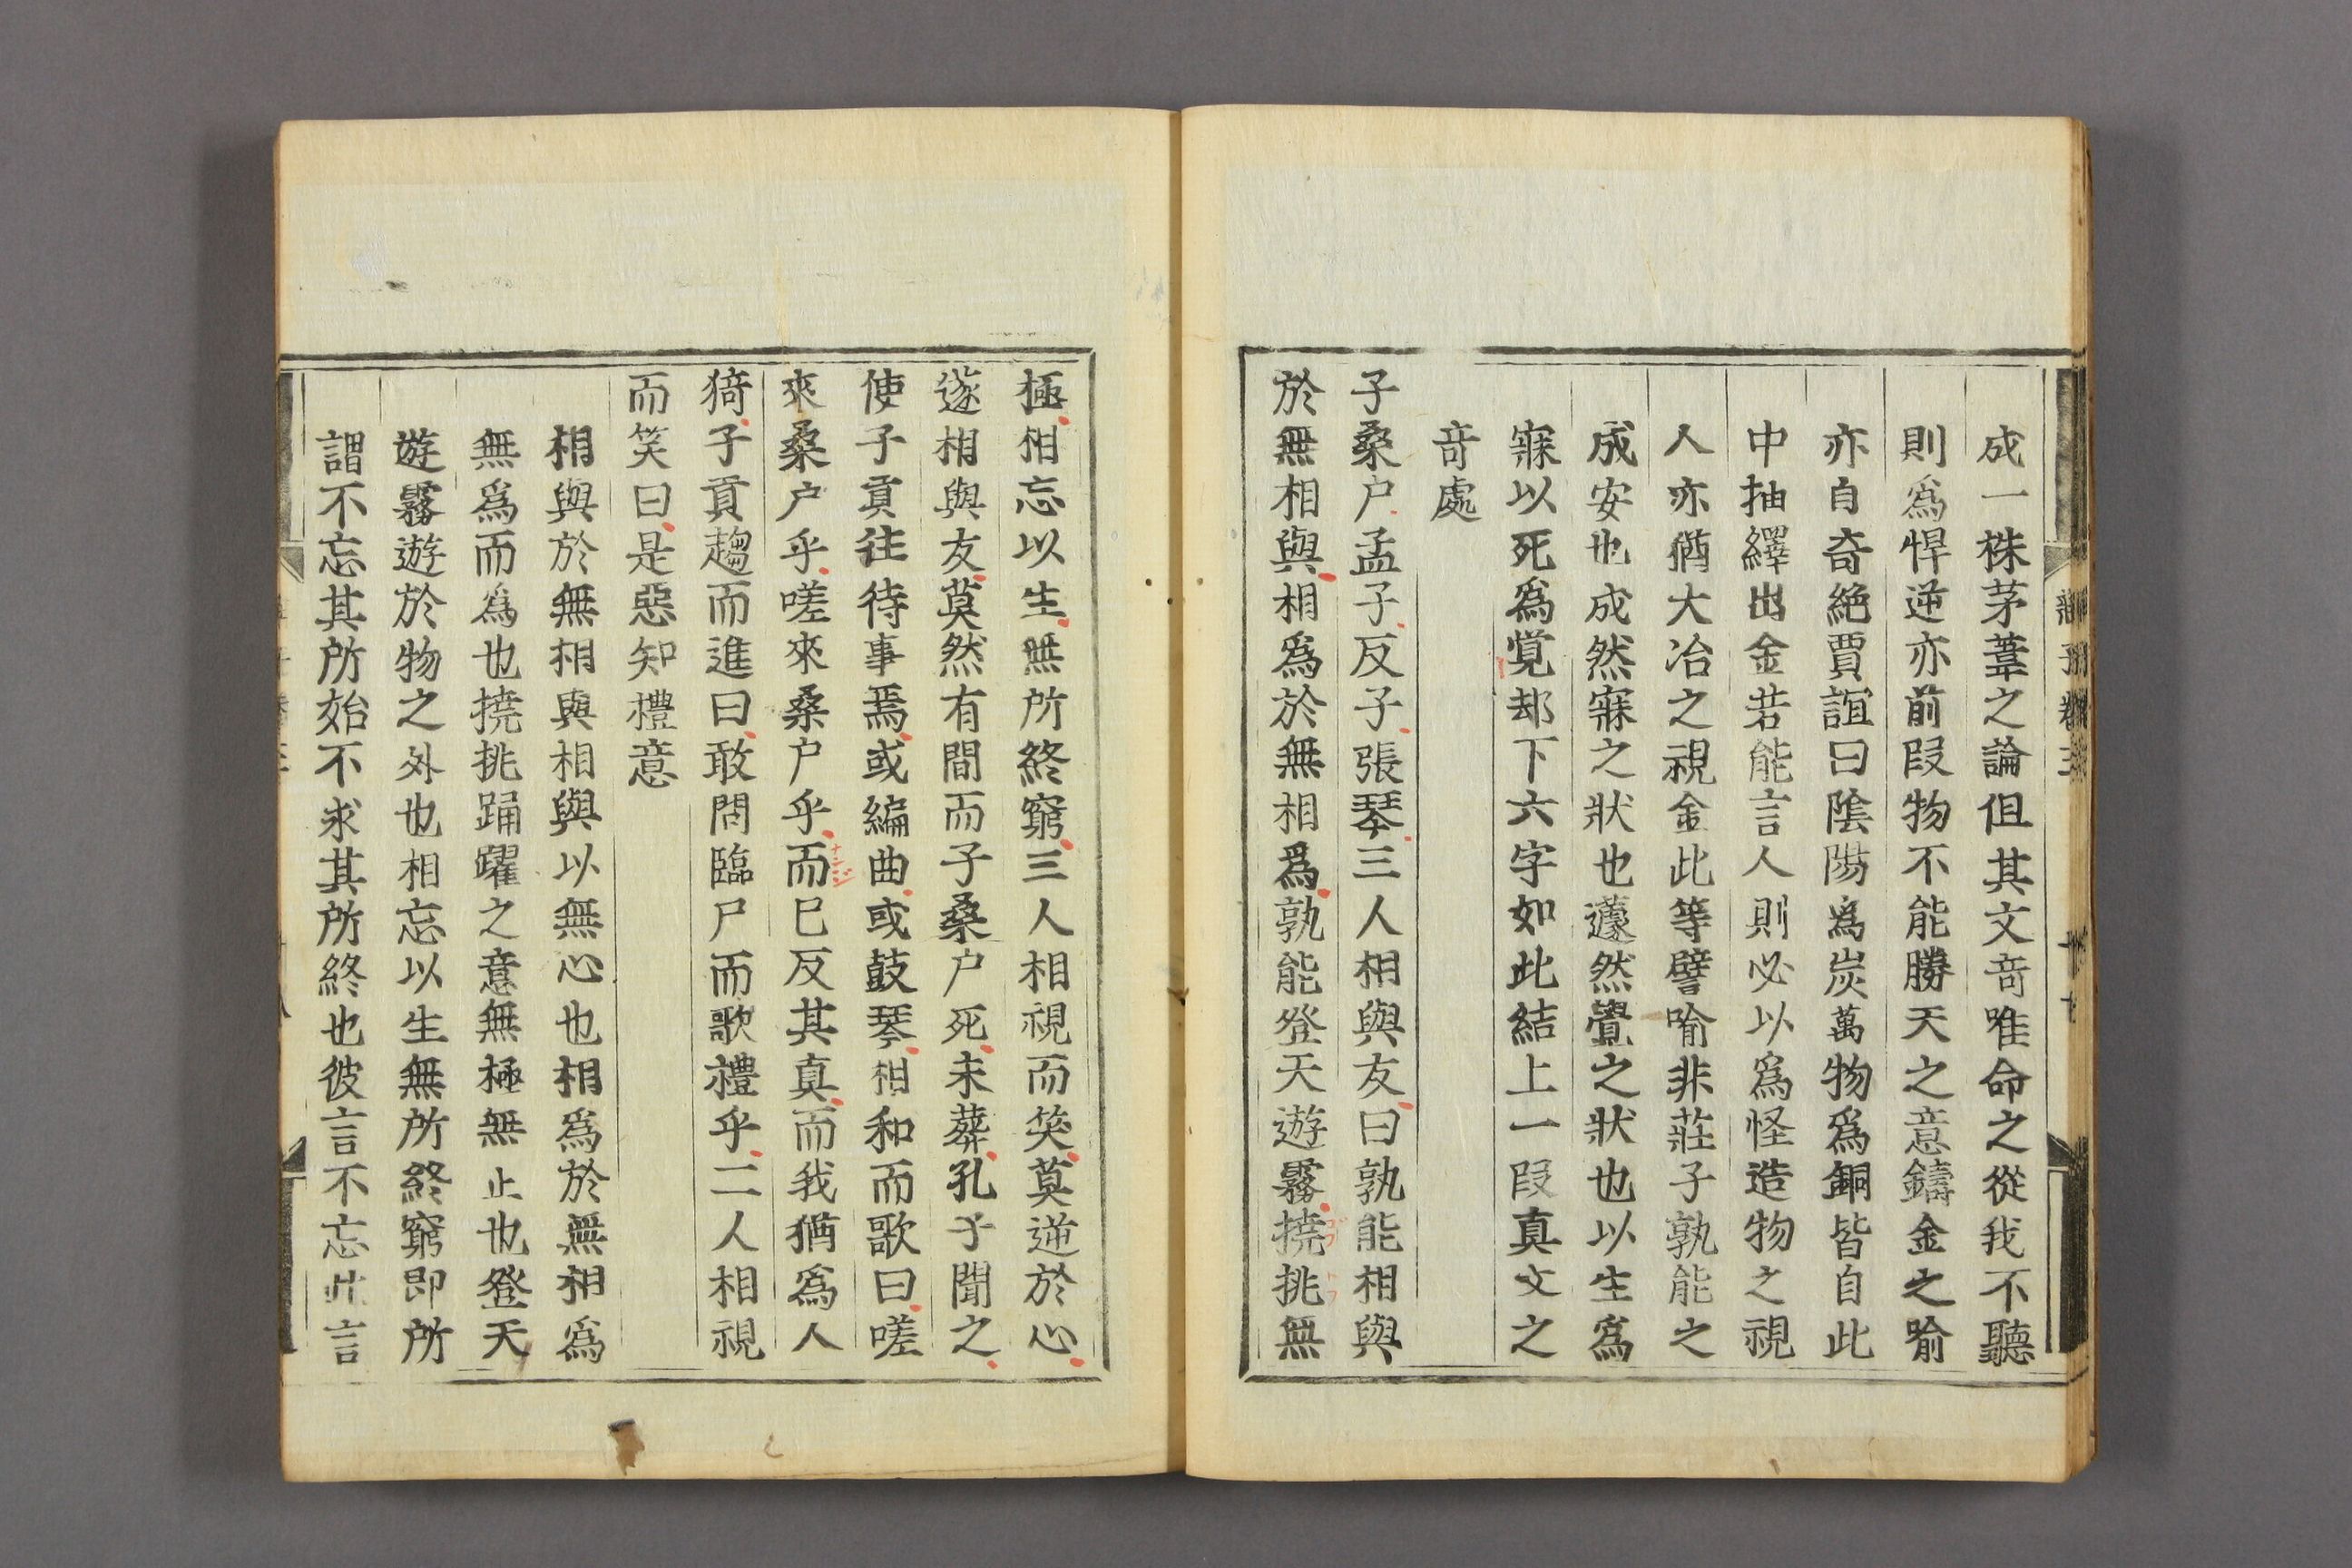 成一株茅葦之論但其文竒唯命之從我不聽
則爲悍逆亦前段物不能勝天之意鑄金之喻
亦自奇絶賈誼曰陰陽爲炭萬物爲銅皆自此
中抽繹出金若能言人則必以爲怪造物之視
人亦猶大冶之視金此等譬喻非莊子孰能之
成安也成然寐之狀也蘧然覺之狀也以生爲
寐以死爲覚却下六字如此結上一段真文之
竒處
子桑户孟子反子張琴三人相與友曰孰能相與
於無相與相爲於無相爲孰能登天遊霧撓挑無
極相忘以生無所終窮三人相視而笑莫逆於心
遂相與友莫然有間而子桑户死未葬孔子聞之
使子貢往待事焉或編曲或鼓琴相和而歌曰嗟
來桑户乎嗟來桑户乎而已反其真而我猶爲人
猗子貢趨而進曰敢問臨尸而歌禮乎二人相視
而笑曰是惡知禮意
相與於無相與相與以無心也相爲於無相爲
無爲而爲也撓挑踊躍之意無極無止也登天
遊霧遊於物之外也相忘以生無所終窮即所
謂不忘其所始不求其所終也彼言不忘此言